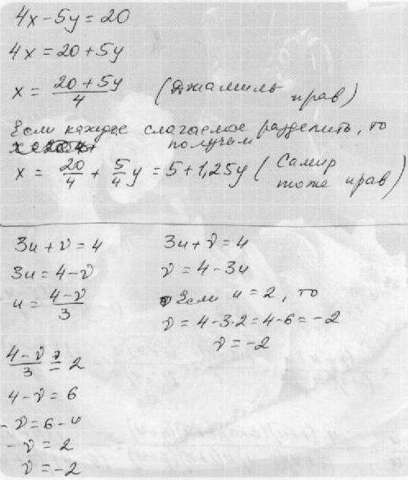 4x-5y=20
4x=20+5y
x = (20+5y)/4 (Джамиль прав)
Если каждое слагаемое разделить, то
получим
x = 20/4 + 5/4 y = 5+1,25y (Самир
тоже прав)
3u+v=4
3u=4-v
u=(4-v)/3
(4-v)/3 = 2
4-v=6
-v=6-4
-v=2
v=-2
3u+v=4
v=4-3u
Если u=2, то
v=4-3·2=4-6=-2
v=-2